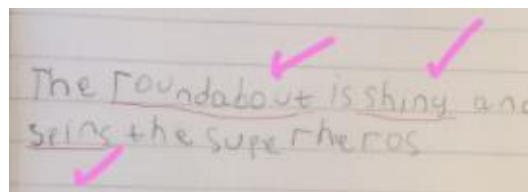 The roundabout is shiny and
spins the superheros